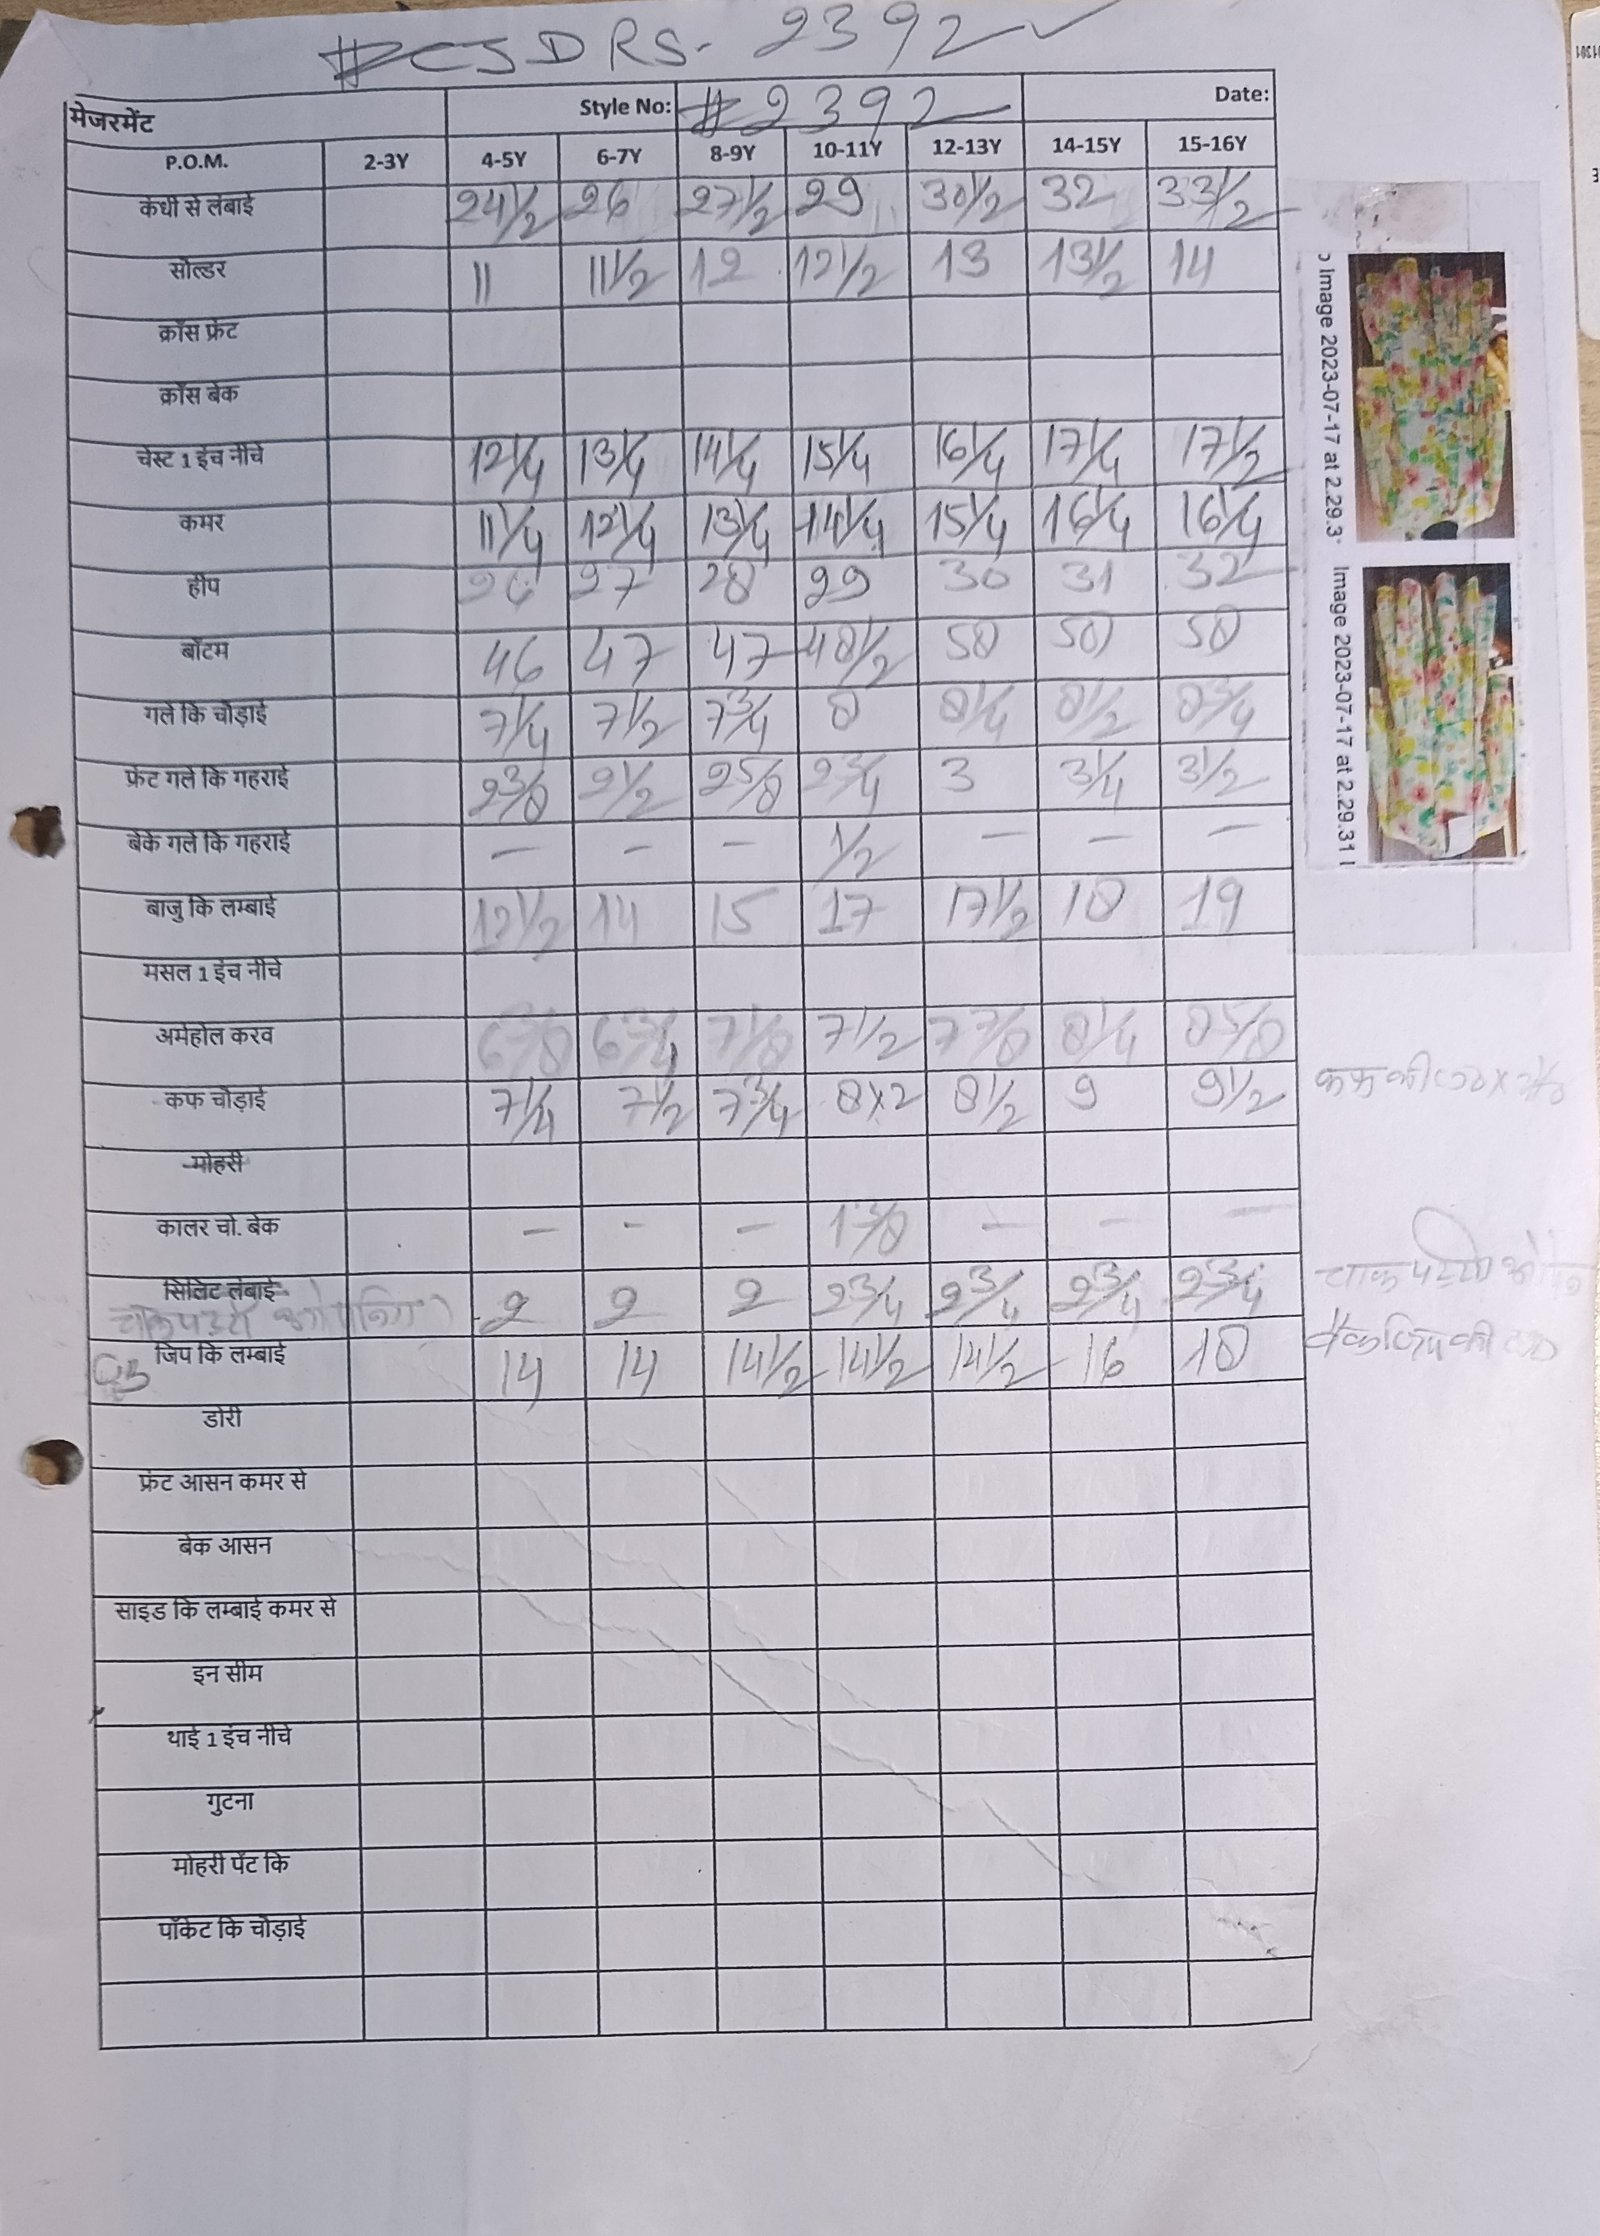 #CSDRS- 2392
मेजरमेंट Style No: #2392 Date:
P.O.M. 2-3Y 4-5Y 6-7Y 8-9Y 10-11Y 12-13Y 14-15Y 15-16Y
कंधी से लंबाई 24 1/2 26 27 1/2 29 30 1/2 32 33 1/2
सोल्डर 11 11 1/2 12 12 1/2 13 13 1/2 14
क्रॉस फ्रंट
क्रॉस बेक
चेस्ट 1 इंच नीचे 12 1/4 13 1/4 14 1/4 15 1/4 16 1/4 17 1/4 17 1/2
कमर 11 1/4 12 1/4 13 1/4 14 1/4 15 1/4 16 1/4 16 1/4
हीप 26 27 28 29 30 31 32
बॉटम 46 47 47 48 1/2 50 50 50
गले कि चोड़ाई 7 1/4 7 1/2 7 3/4 8 8 1/4 8 1/2 8 3/4
फ्रंट गले कि गहराई 2 3/8 2 1/2 2 5/8 2 3/4 3 3 1/4 3 1/2
बेक गले कि गहराई — — — 1/2 — — —
बाजु कि लम्बाई 12 1/2 14 15 17 17 1/2 18 19
मसल 1 इंच नीचे
अर्महोल करव 6 3/8 6 3/4 7 1/8 7 1/2 7 7/8 8 1/4 8 5/8
कफ चोड़ाई 7 1/4 7 1/2 7 3/4 8x2 8 1/2 9 9 1/2
मोहरी
कालर चो. बेक — - — — - —
सिलिट लंबाई 2 2 2 2 3/4 2 3/4 2 3/4 2 3/4
जिप कि लम्बाई 14 14 14 1/2 14 1/2 14 1/2 16 18
डोरी
फ्रंट आसन कमर से
बेक आसन
साइड कि लम्बाई कमर से
इन सीम
थाई 1 इंच नीचे
गुटना
मोहरी पेंट कि
पॉकेट कि चोड़ाई
Image 2023-07-17 at 2.29.3
Image 2023-07-17 at 2.29.31